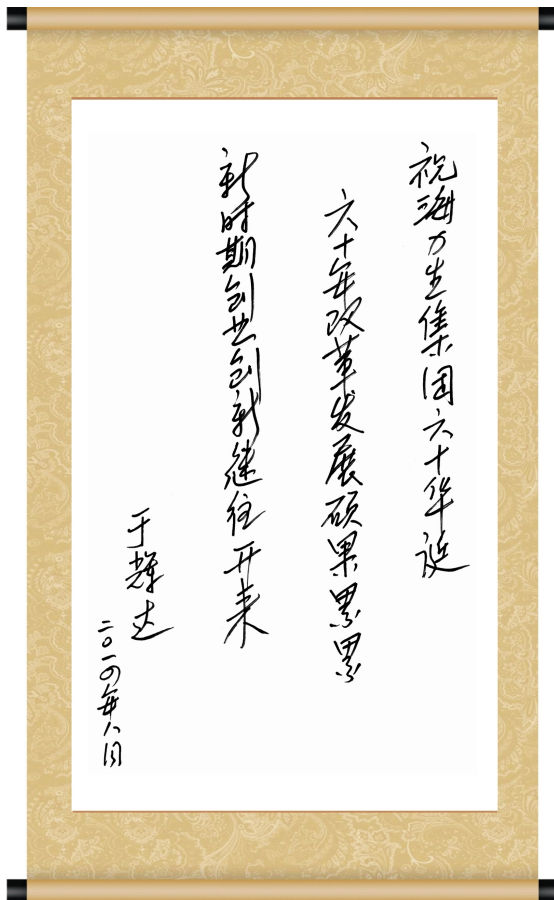 祝海力生集团六十华诞
六十年改革发展硕果累累
新时期创业创新继往开来
于辉达
二〇一四年八月